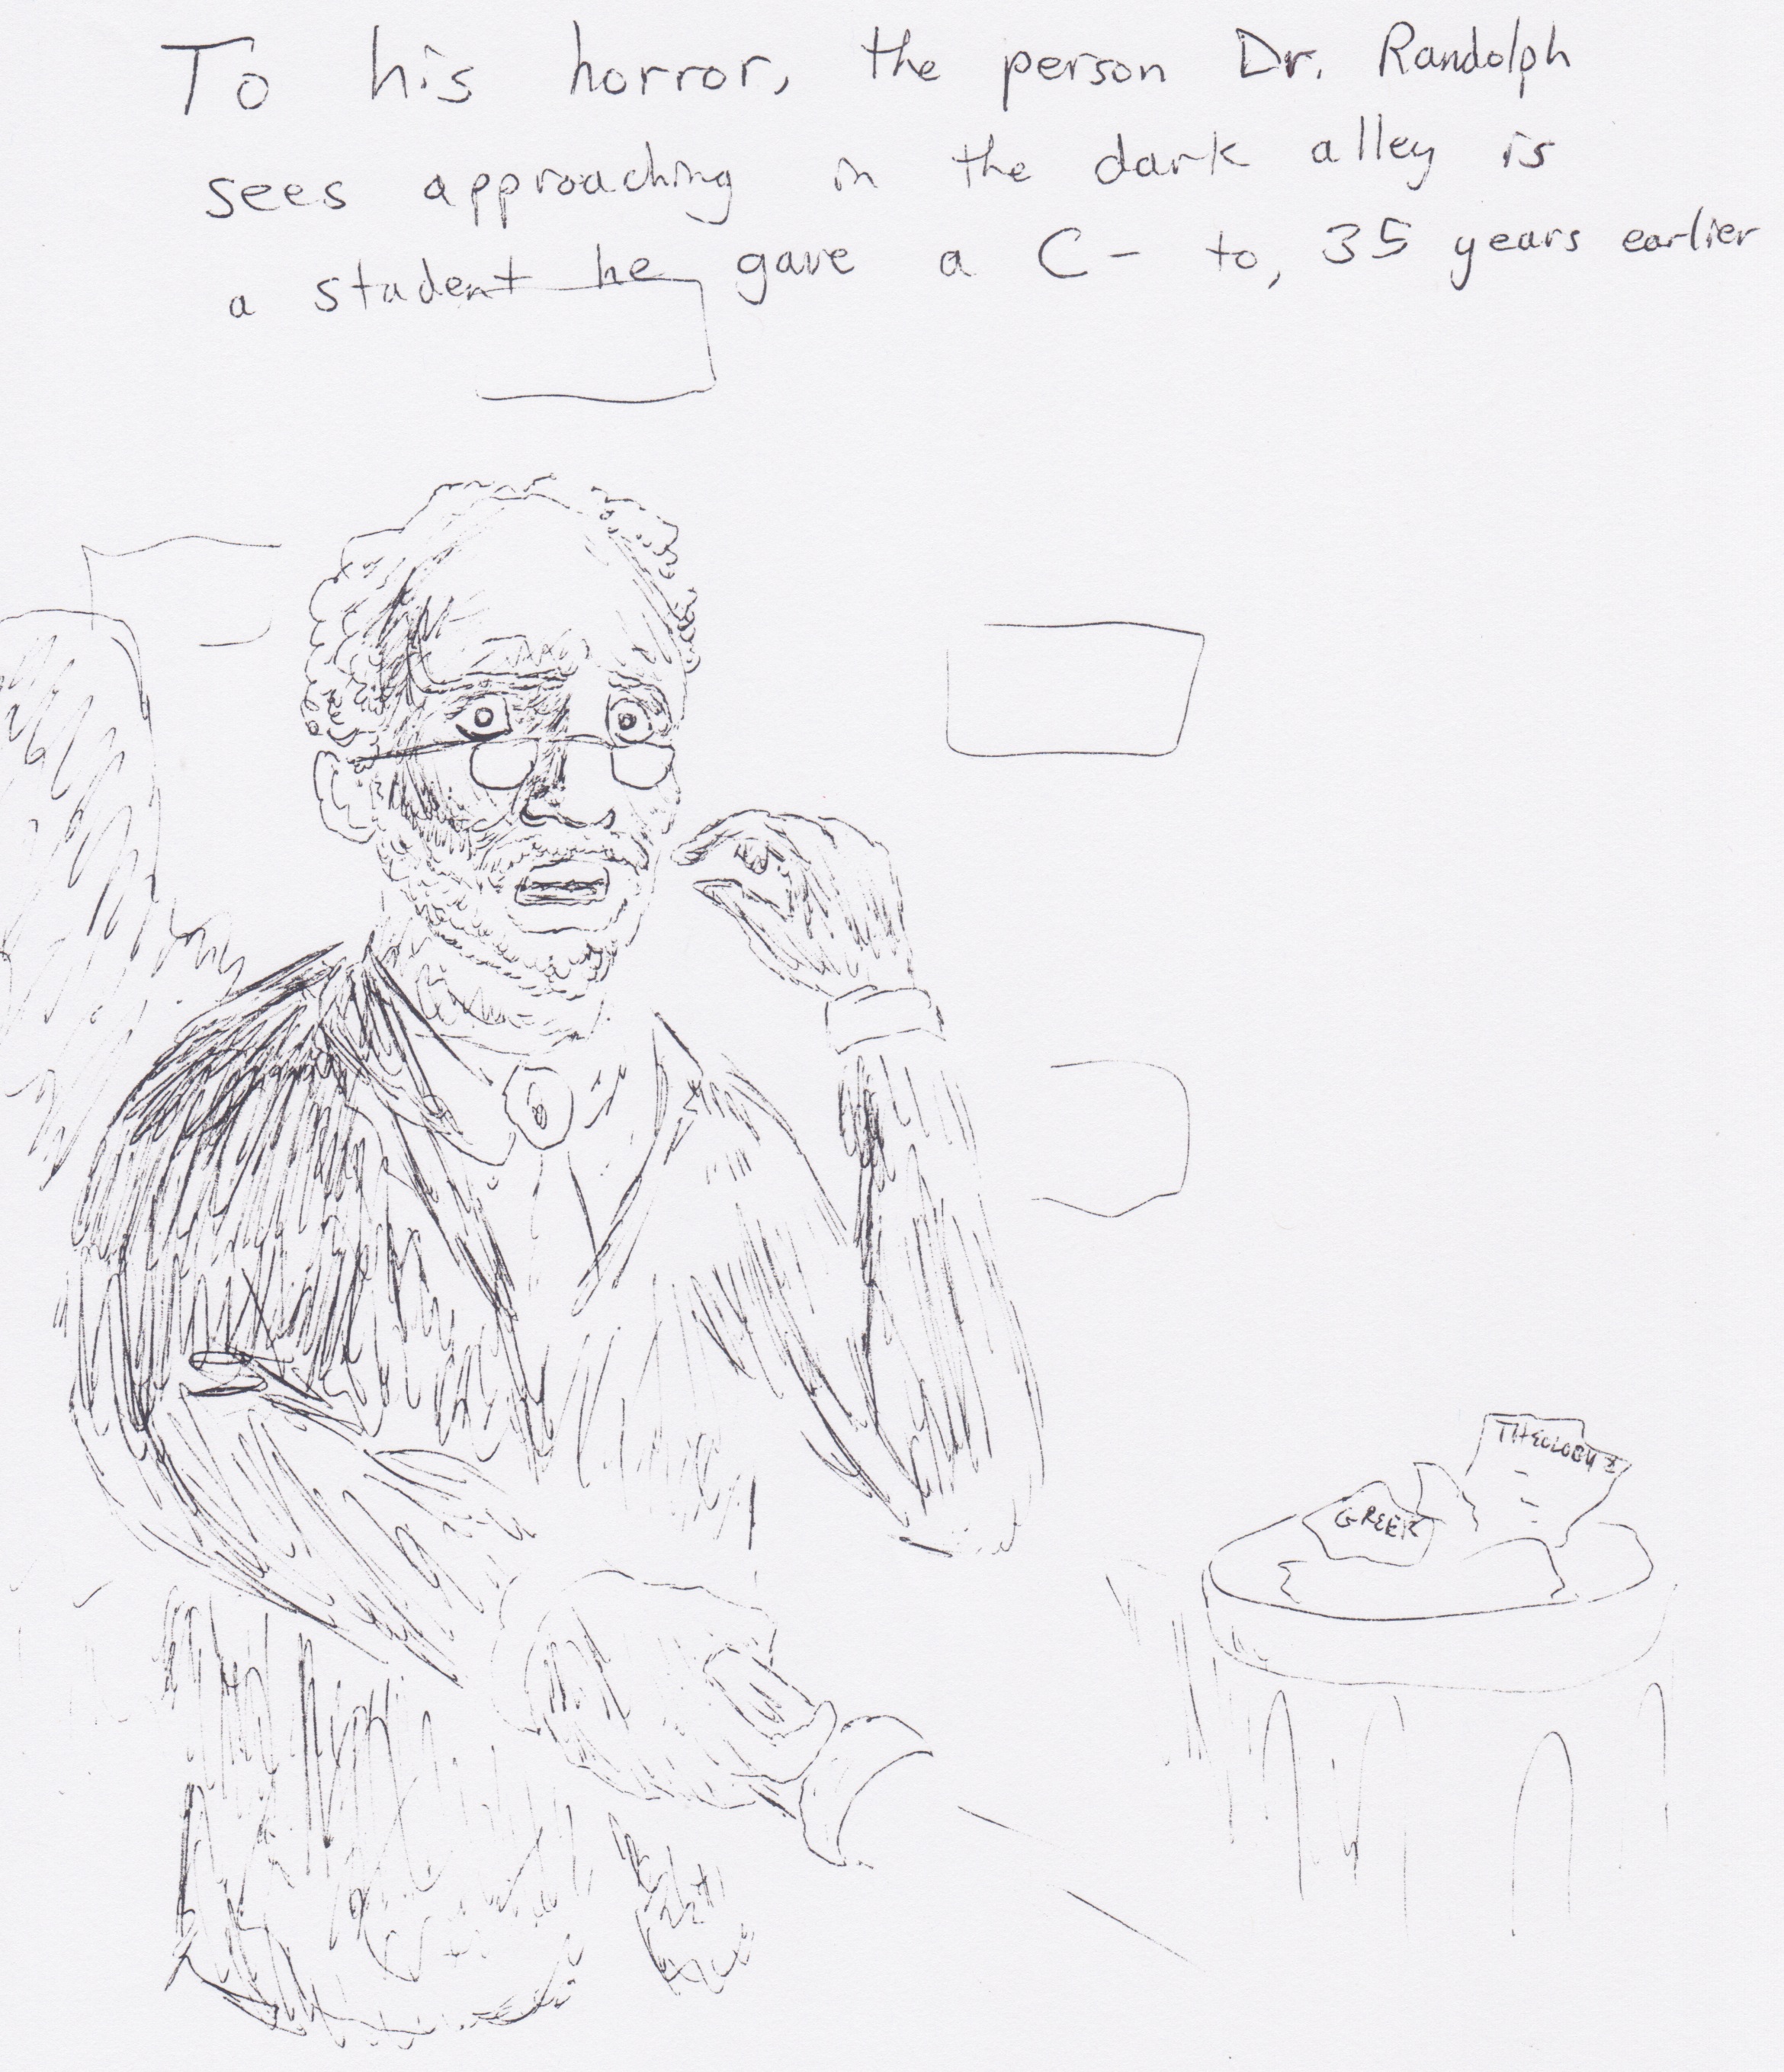 To his horror, the person Dr. Randolph
sees approaching in the dark alley is
a student he gave a C- to, 35 years earlier
THEOLOGY I
GREEK